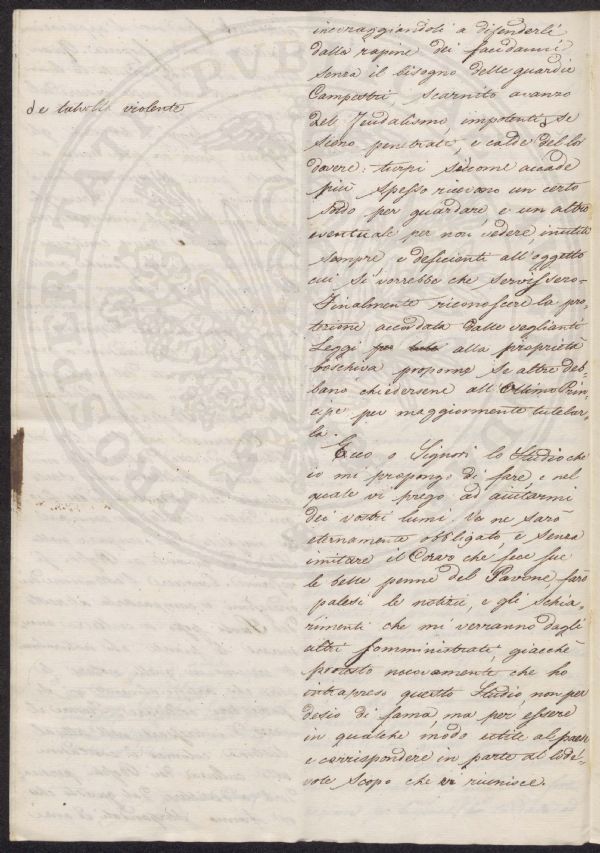 incoraggiandoli a difenderli
dalla rapine dei facidanni
senza il bisogno delle guardie
Campestri, scarnito avanzo
de talvolta violente
del Feudalismo, impotenti se
sieno penetrate, e calde del lor
dovere: turpi siccome accade
più spesso ricevano un certo
soldo per guardare, e un altro
eventuale per non vedere, inutili
sempre, e deficienti all'oggetto
cui si vorrebbe che servissero-
Finalmente riconoscere la pro-
tezione accordata dalle veglianti
Leggi alla proprietà
boschiva proporre se altre deb-
bano chiedersene all'Ottimo Prin-
cipe per maggiormente tutelar-
la.
Ecco o Signori lo Studio che
io mi propongo di fare, e nel
quale vi prego ad aiutarmi
dei vostri lumi. Ve ne sarò
eternamente obbligato, e senza
imitare il Corvo che fece sue
le belle penne del Pavone, farò
palesi le notizie, e gli schia-
rimenti che mi verranno dagli
altri somministrati, giacchè
protesto nuovamente che ho
intrapreso questo Studio, non per
desio di fama, ma per essere
in qualche modo utile al paese
e corrispondere in parte al lode-
vole scopo che ci riunisce.
PROSPERITAS
PUB